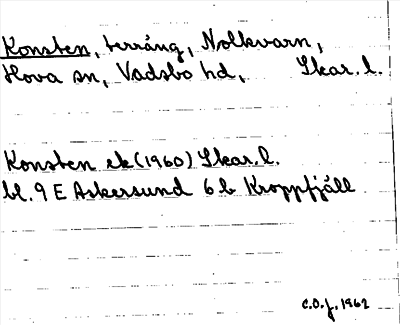 Konsten, terräng, Nolkvarn,
Hova sn, Vadsbo hd, Skar. l.
Konsten ek (1960) Skar. l.
bl. 9 E Askersund 6 b Kroppfjäll
C.O.J. 1962